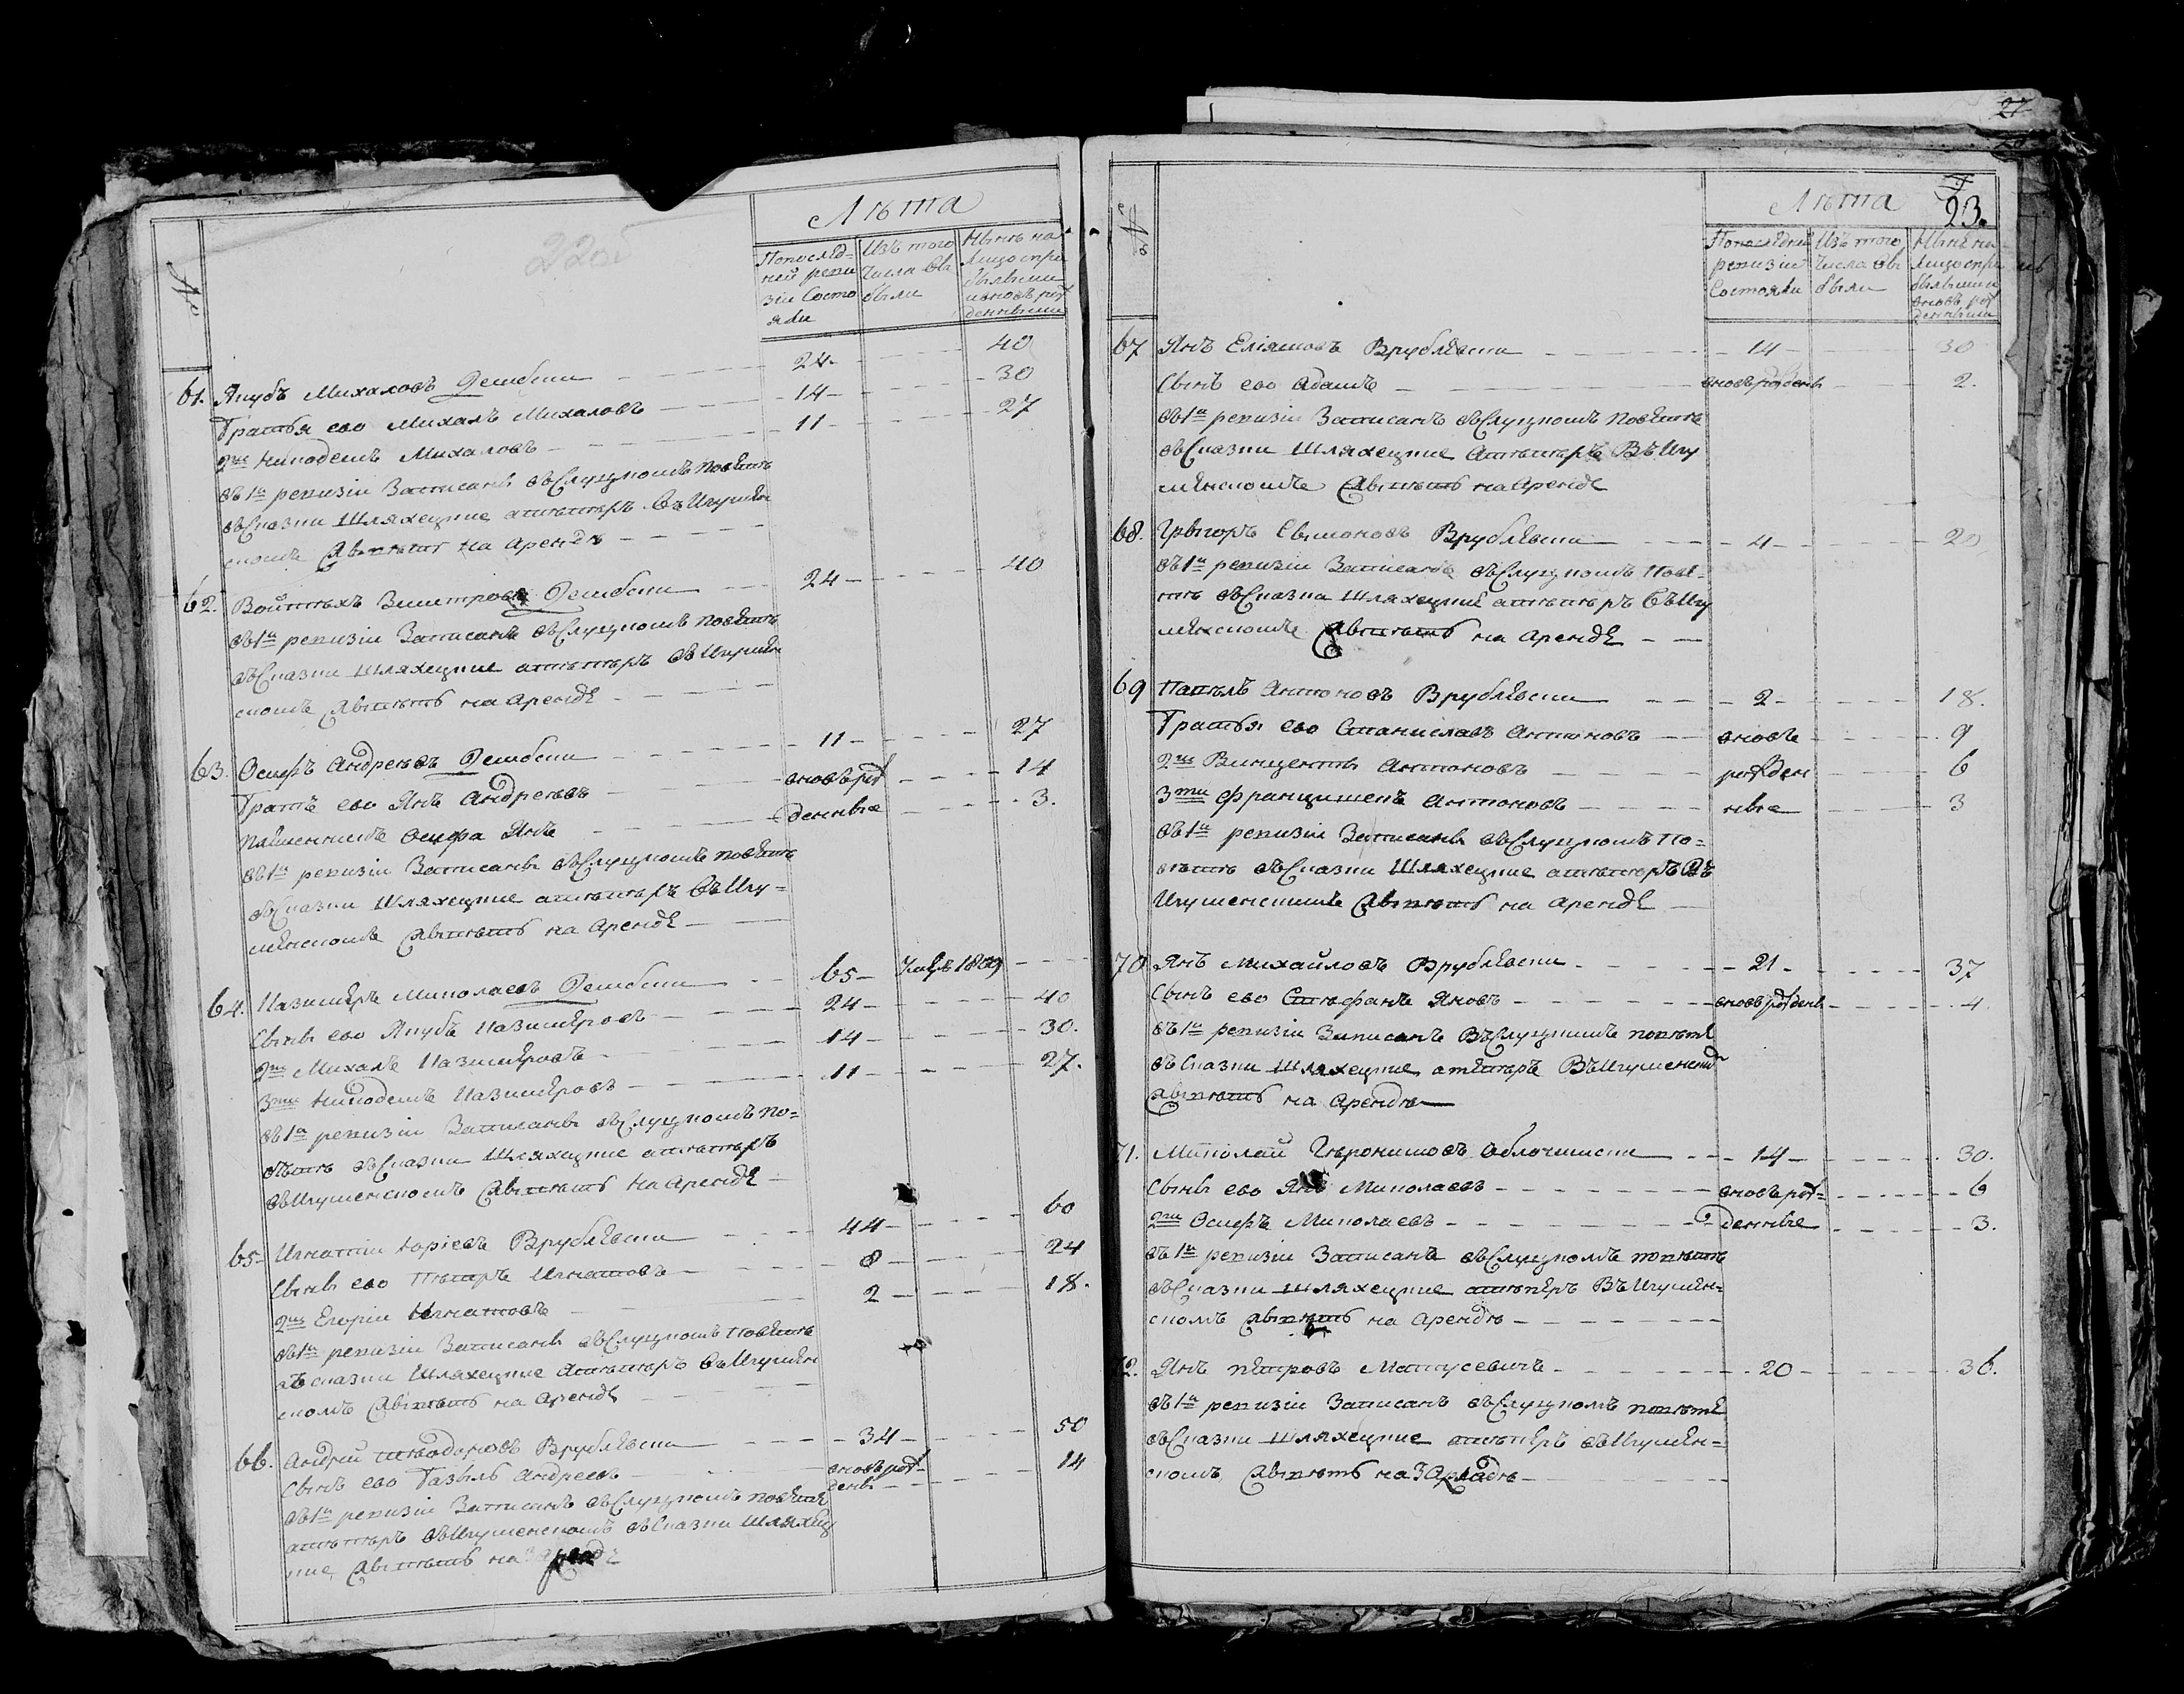 22об
№
Лѣта
Попослѣд=
ней реви
зіи Состо
яли
Изъ того
Числа Вы
были
Нынѣ на
Лицо при
бывшии
ивновь рож
деннныии
61. Якубъ Михаловъ Дембски 24 40
Братья его Михалъ Михаловъ 14 30
2й Никодемъ Михаловъ 11 27
въ 1й ревизіи Записаны въ Слуцкомъ Повѣтѣ
въ Сказки Шляхецкие атѣперъ въ Игумен
скомъ Авитетъ на Арендѣ
62. Войтехъ Дембски 24 40
въ 1й ревизіи Записанъ въ Слуцкомъ Повѣтѣ
въ Сказки Шляхецкие атѣперъ въ Игумен
скомъ Авитетъ на Арендѣ
63. Осифъ Андреевъ Дембски 11 27
Братъ его Янъ Андреевъ вновь рож 14
Племенникъ Осифа Янъ денные 3.
въ 1й ревизіи Записаны въ Слуцкомъ Повѣтѣ
въ Сказки Шляхецкие атѣперъ въ Игу=
менскомъ Авитетъ на Арендѣ
64. Казимеръ Миколаевъ Дембски 65 1809
Сыны его Якубъ Казимеровъ 24 40
2й Михалъ Казимеровъ 14 30.
3ти Никодемъ Казимеровъ 11 27.
въ 1й ревизіи Записаны въ Слуцкомъ По=
вѣтѣ въ Сказки Шляхецкие атѣперъ
въ Игуменскомъ Авитетъ на Арендѣ
65. Игнатіи Врублевски 44 60
Сыны его Петръ Игнатовъ 8 24
2й Егоріи Игнатовъ 2 18.
въ 1й ревизіи Записаны въ Слуцкомъ Повѣтѣ
въ сказки Шляхецкие Атѣперъ въ Игумен
скомъ Авитетъ на Арендѣ
66. Андрей Врублевски 34 50
Сынъ его Базыль Андреевъ вновь рож= 14
въ 1й ревизіи Записанъ въ Слуцкомъ Повѣтѣ дены
атѣперъ въ Игуменскомъ въ Сказки Шляхец
кие Авитетъ на Арендѣ
27
23.
№
Лѣта
Попослѣдней
ревизіи
Состояли
Изъ того
Числа Вы
были
Нынѣ на
Лицо при
бывшии
вновь рож
денныии
67 Янъ Еліяшовъ Врублевски 14 30
Сынъ его Адамъ вновь рожденъ 2.
въ 1й ревизіи Записанъ въ Слуцкомъ Повѣтѣ
въ Сказки Шляхецкие Атѣперъ Въ Игу
менскомъ Авитетъ на Арендѣ
68. Грыгоръ Сымоновъ Врублевски 4 20
въ 1й ревизіи Записанъ въ Слуцкомъ Повѣ=
тѣ въ Сказки Шляхецкие атѣперъ въ Игу
менскомъ Авитетъ на Арендѣ
69 Павелъ Антоновъ Врублевски 2 18.
Братья его Станиславъ Антоновъ вновь 9
2й Винцентъ Антоновъ рожден 6
3ти Францишекъ Антоновъ ные 3
въ 1й ревизіи Записаны въ Слуцкомъ По=
вѣтѣ въ Сказки Шляхецкие атѣперъ Въ
Игуменскимъ Авитетъ на Арендѣ
70 Янъ Михайловъ Врублевски 21 37
Сынъ его Стефанъ Яновъ вновь рожденъ 4
въ 1й ревизіи Записанъ Въ Слуцкимъ повѣтѣ
въ Сказки Шляхецкие атеперъ Въ Игуменскомъ
Авитетъ на Арендѣ
71. Миколай Геронимовъ 14 30.
Сыны его Янъ Миколаевъ вновь рож= 6
2ги Осифъ Миколаевъ денные 3.
въ 1й ревизіи Записанъ въ Слуцкомъ повѣтѣ
въ Сказки Шляхецкие атѣперъ Въ Игумен=
скомъ Авитетъ на Арендѣ
72. Янъ Петровъ Матусевичъ 20 36.
въ 1й ревизіи Записанъ въ Слуцкомъ повѣтѣ
въ Сказки Шляхецкие атѣперъ въ Игумен=
скомъ Авитетъ на Арендѣ